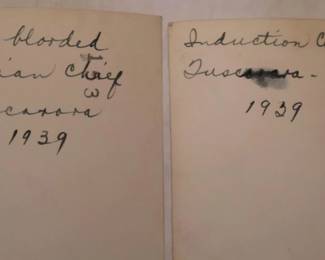 blooded
ian Chief
w
scarora
1939
Induction C
Tuscarora -
1939